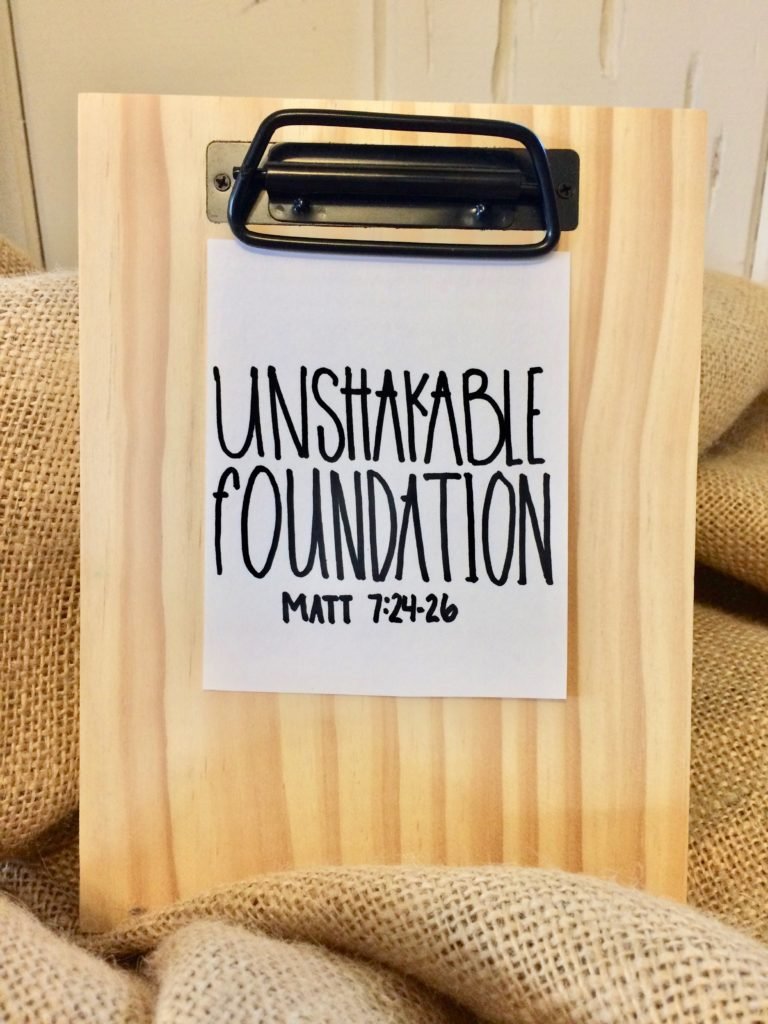 UNSHAKABLE
fOUNDATION
MATT 7:24-26